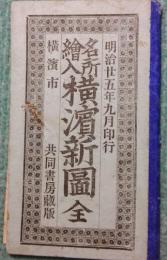 明治廿五年九月印行
名所
繪入
橫濱新圖 全
橫濱市 共同書房藏版